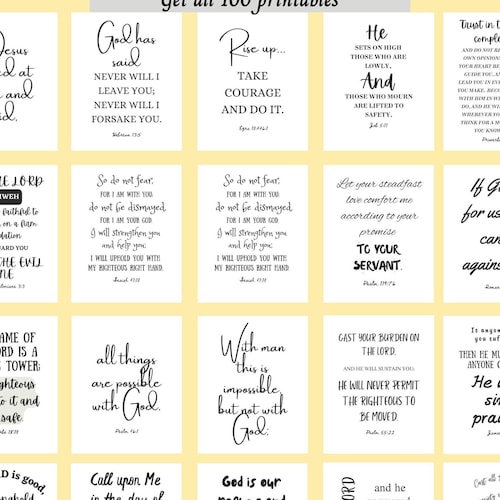 Get all 100 printables
Jesus
at
and
said,
God has
said
NEVER WILL I
LEAVE YOU;
NEVER WILL I
FORSAKE YOU.
Hebrews 13:5
Rise up...
TAKE
COURAGE
AND DO IT.
Ezra 10:4
He
SETS ON HIGH
THOSE WHO ARE
LOWLY,
And
THOSE WHO MOURN
ARE LIFTED TO
SAFETY.
Job 5:11
Trust in
complete
AND DO NOT RE
OWN OPINIONS.
YOUR HEART RE
GUIDE YOU, AN
LEAD YOU IN EV
YOU MAKE. BECO
WITH HIM IN W
DO, AND HE WI
WHEREVER YO
THINK FOR A M
YOU KNOW
Prover
LORD
WEH
faithful to
on a firm
dation
UARD YOU
THE EVIL
NE
3:3
So do not fear,
FOR I AM WITH YOU,
do not be dismayed,
FOR I AM YOUR GOD.
I will strengthen you
and help you;
I WILL UPHOLD YOU WITH
MY RIGHTEOUS RIGHT HAND.
Isaiah 41:10
So do not fear,
FOR I AM WITH YOU,
do not be dismayed,
FOR I AM YOUR GOD.
I will strengthen you
and help you;
I WILL UPHOLD YOU WITH
MY RIGHTEOUS RIGHT HAND.
Isaiah 41:10
Let your steadfast
love comfort me
according to your
promise
TO YOUR
SERVANT.
Psalm 119:76
If G
for us
can
agains
Roman
AME OF
ORD IS A
TOWER;
ighteous
to it and
safe.
18:10
all things
are possible
with God.
With man
this is
impossible,
but not with
God;
CAST YOUR BURDEN ON
THE LORD,
AND HE WILL SUSTAIN YOU;
HE WILL NEVER PERMIT
THE RIGHTEOUS TO
BE MOVED.
Psalm 55:22
Is anyone
you suf
THEN HE MU
ANYONE C
He
sin
prais
Jame
RD is good,
Call upon Me
in the day of
God is our
LORD
and he